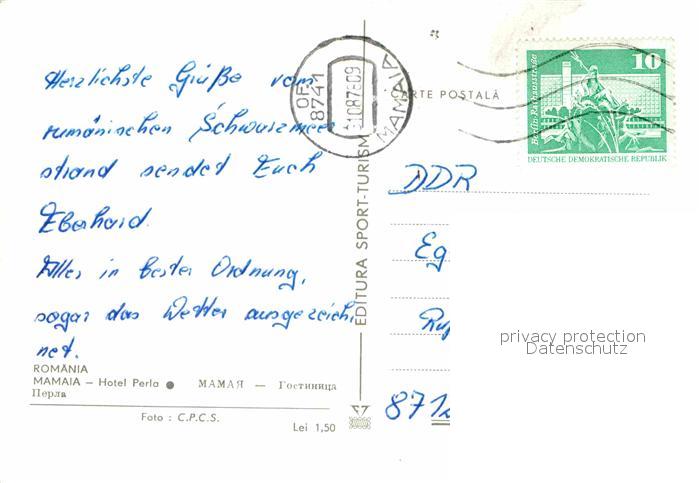 Herzlichste Grüße vom
rumänischen Schwarzmeer
strand sendet Euch
Eberhard.
Alles in bester Ordnung,
sogar das Wetter ausgezeich,
net.
ROMÂNIA
MAMAIA — Hotel Perla ● МАМАЯ — Гостиница
Перла
Foto : C.P.C.S.
Lei 1,50
EDITURA SPORT-TURISM
OF.
8741
MAMAIA
CARTE POSTALĂ
10
Berlin-Rathausstraße
DEUTSCHE DEMOKRATISCHE REPUBLIK
DDR
Eg
871
privacy protection
Datenschutz